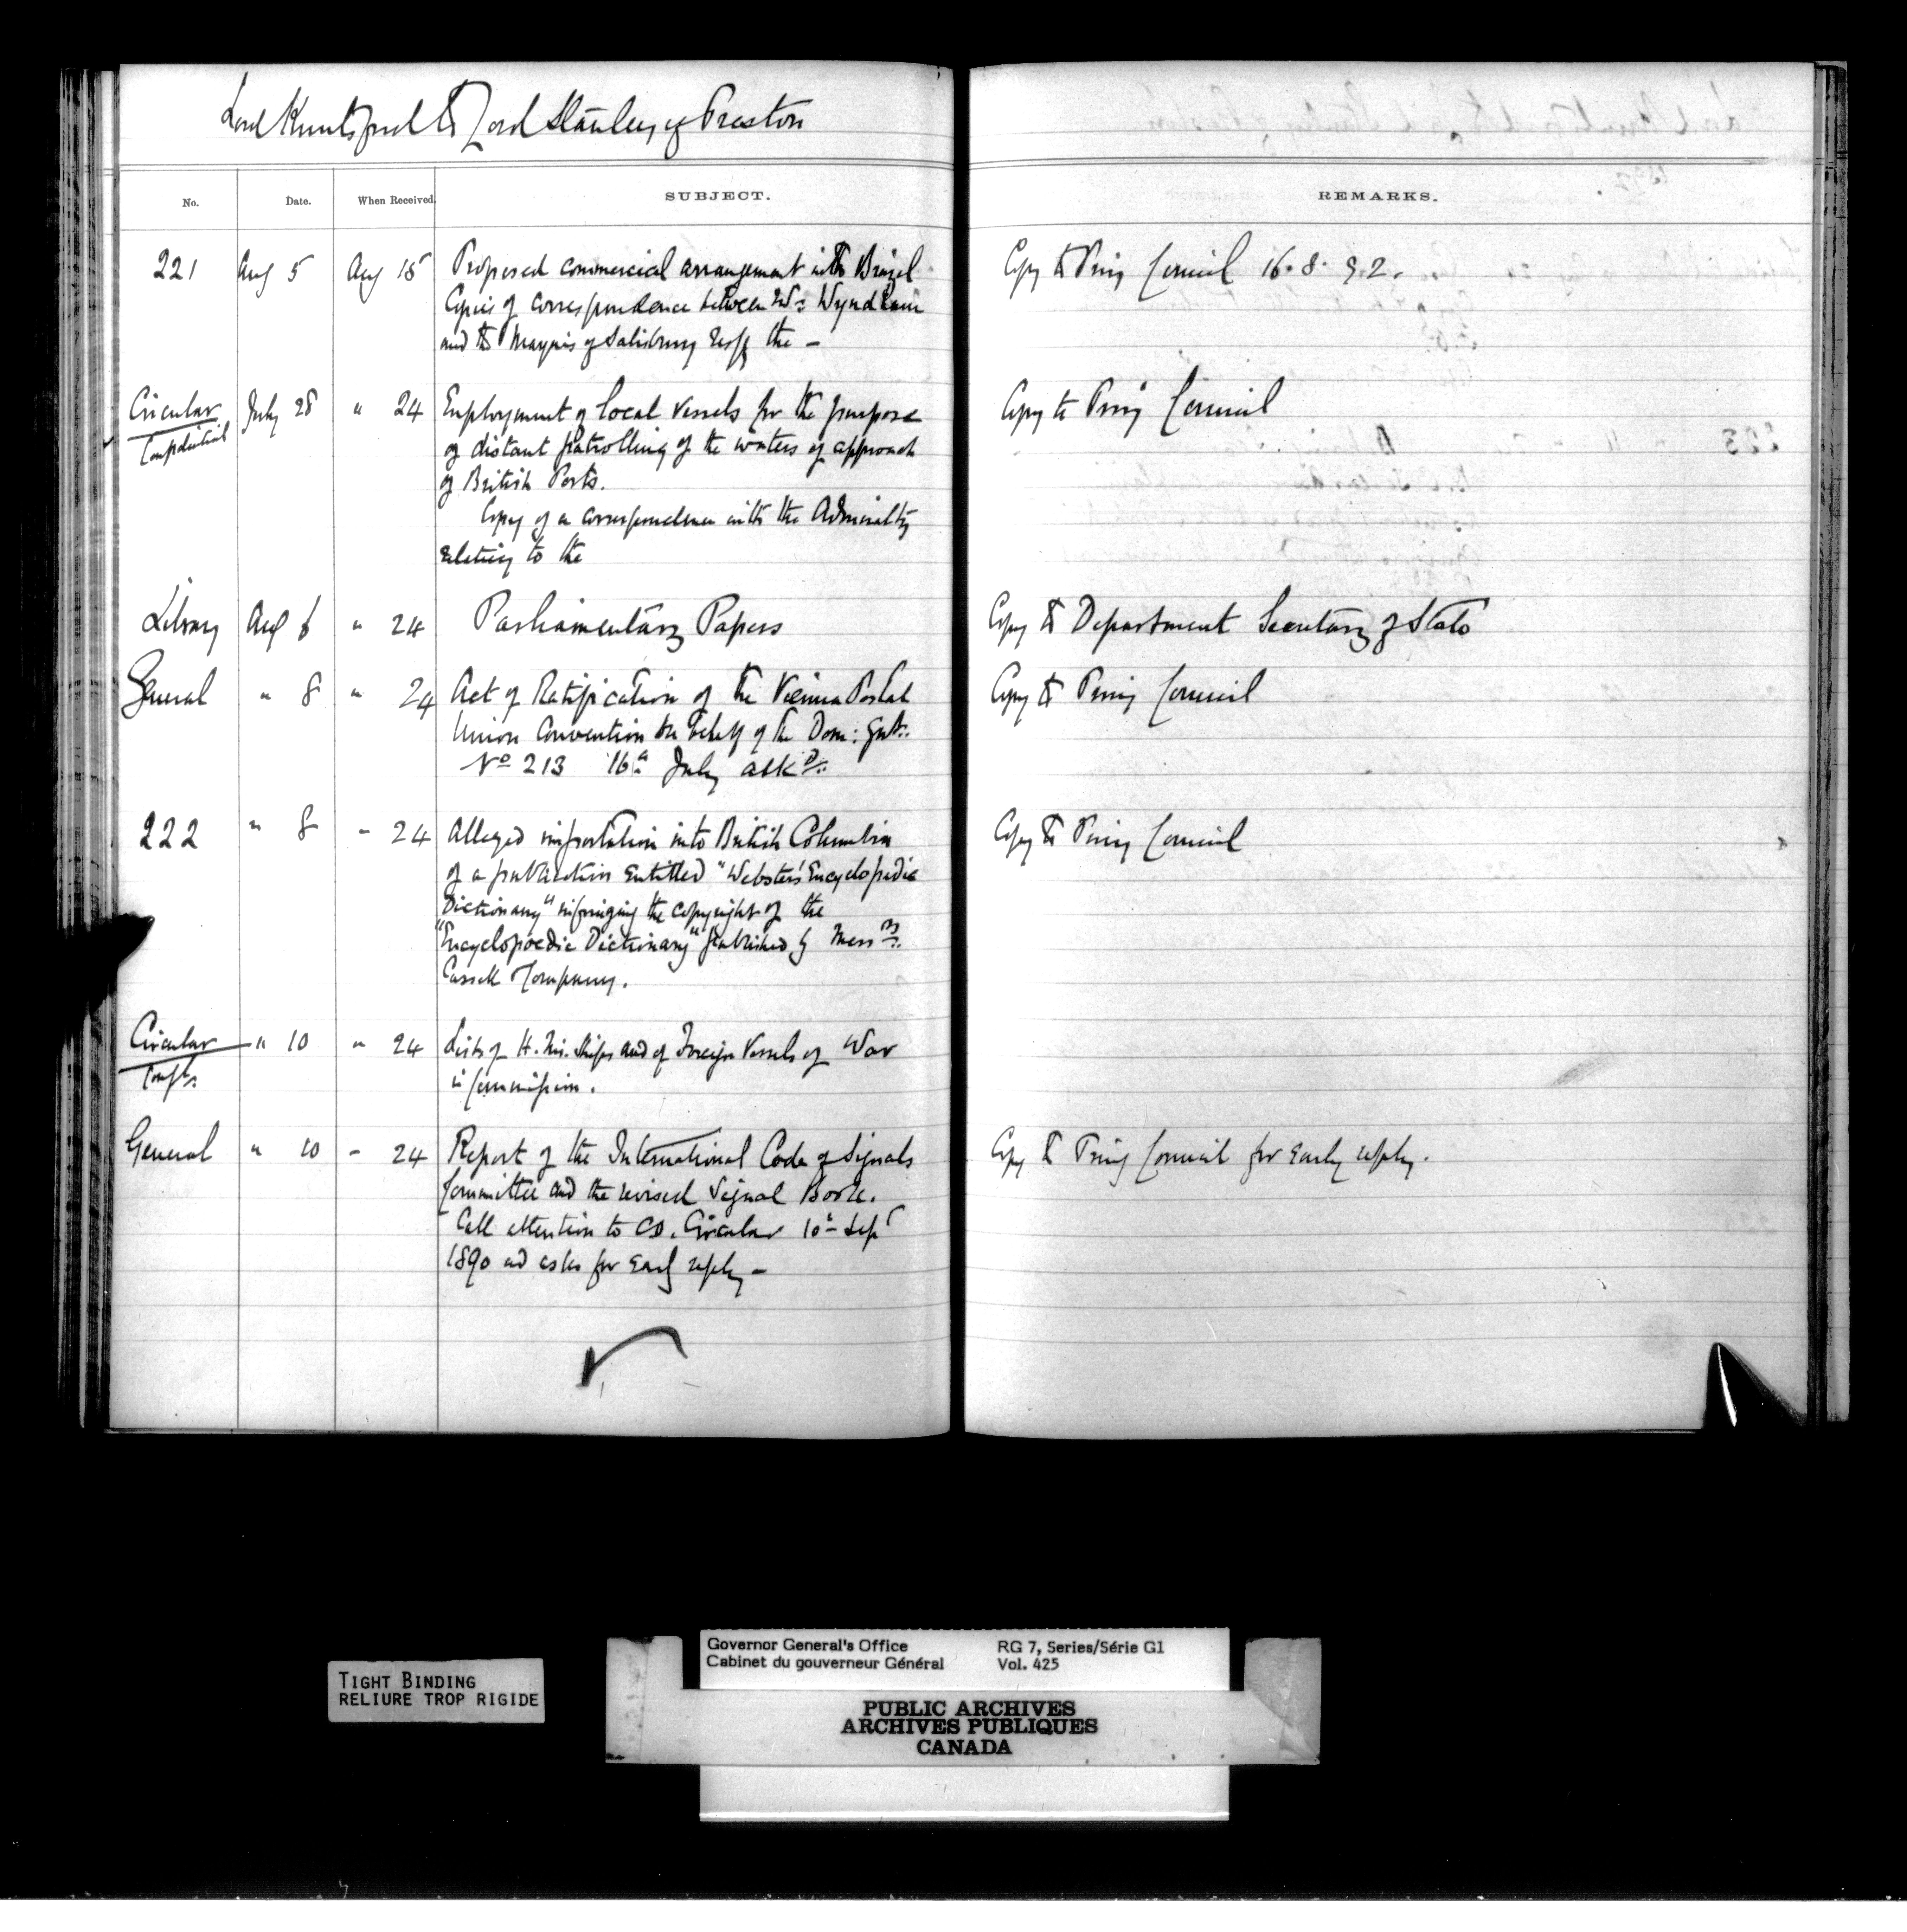 Lord Knutsford to Lord Stanley of Preston
No. Date. When Received. SUBJECT. REMARKS.
221 Aug 5 Aug 15 Proposed commercial arrangement with Brazil Copy to Privy Council 16. 8. 92.
Copies of correspondence between Mr. Wyndham
and the Marquis of Salisbury resp the –
Circular July 28 " 24 Employment of local vessels for the purpose Copy to Privy Council
Confidential of distant patrolling of the waters of approach
of British Ports.
Copy of a correspondence with the Admiralty
relating to the
Library Aug 6 " 24 Parliamentary Papers Copy to Department Secretary of State
General " 8 " 24 Act of Ratification of the Vienna Postal Copy to Privy Council
Union Convention on behalf of the Dom: Govt.
No 213 16th July ackd.
222 " 8 " 24 Alleged importation into British Columbia Copy to Privy Council
of a publication entitled "Webster's Encyclopedic
Dictionary" infringing the copyright of the
"Encyclopædic Dictionary" published by Messrs.
Cassell & Company.
Circular " 10 " 24 Lists of H. M. Ships and of Foreign Vessels of War
Confl. in Commission.
General " 10 " 24 Report of the International Code of Signals Copy to Privy Council for early reply.
Committee and the revised Signal Book.
Call attention to CO. Circular 10th Sept
1890 and asks for early reply –
TIGHT BINDING
RELIURE TROP RIGIDE
Governor General's Office RG 7, Series/Série G1
Cabinet du gouverneur Général Vol. 425
PUBLIC ARCHIVES
ARCHIVES PUBLIQUES
CANADA